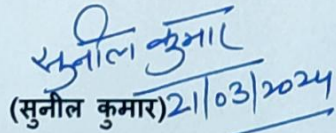 सुनील कुमार
(सुनील कुमार) 21/03/2024